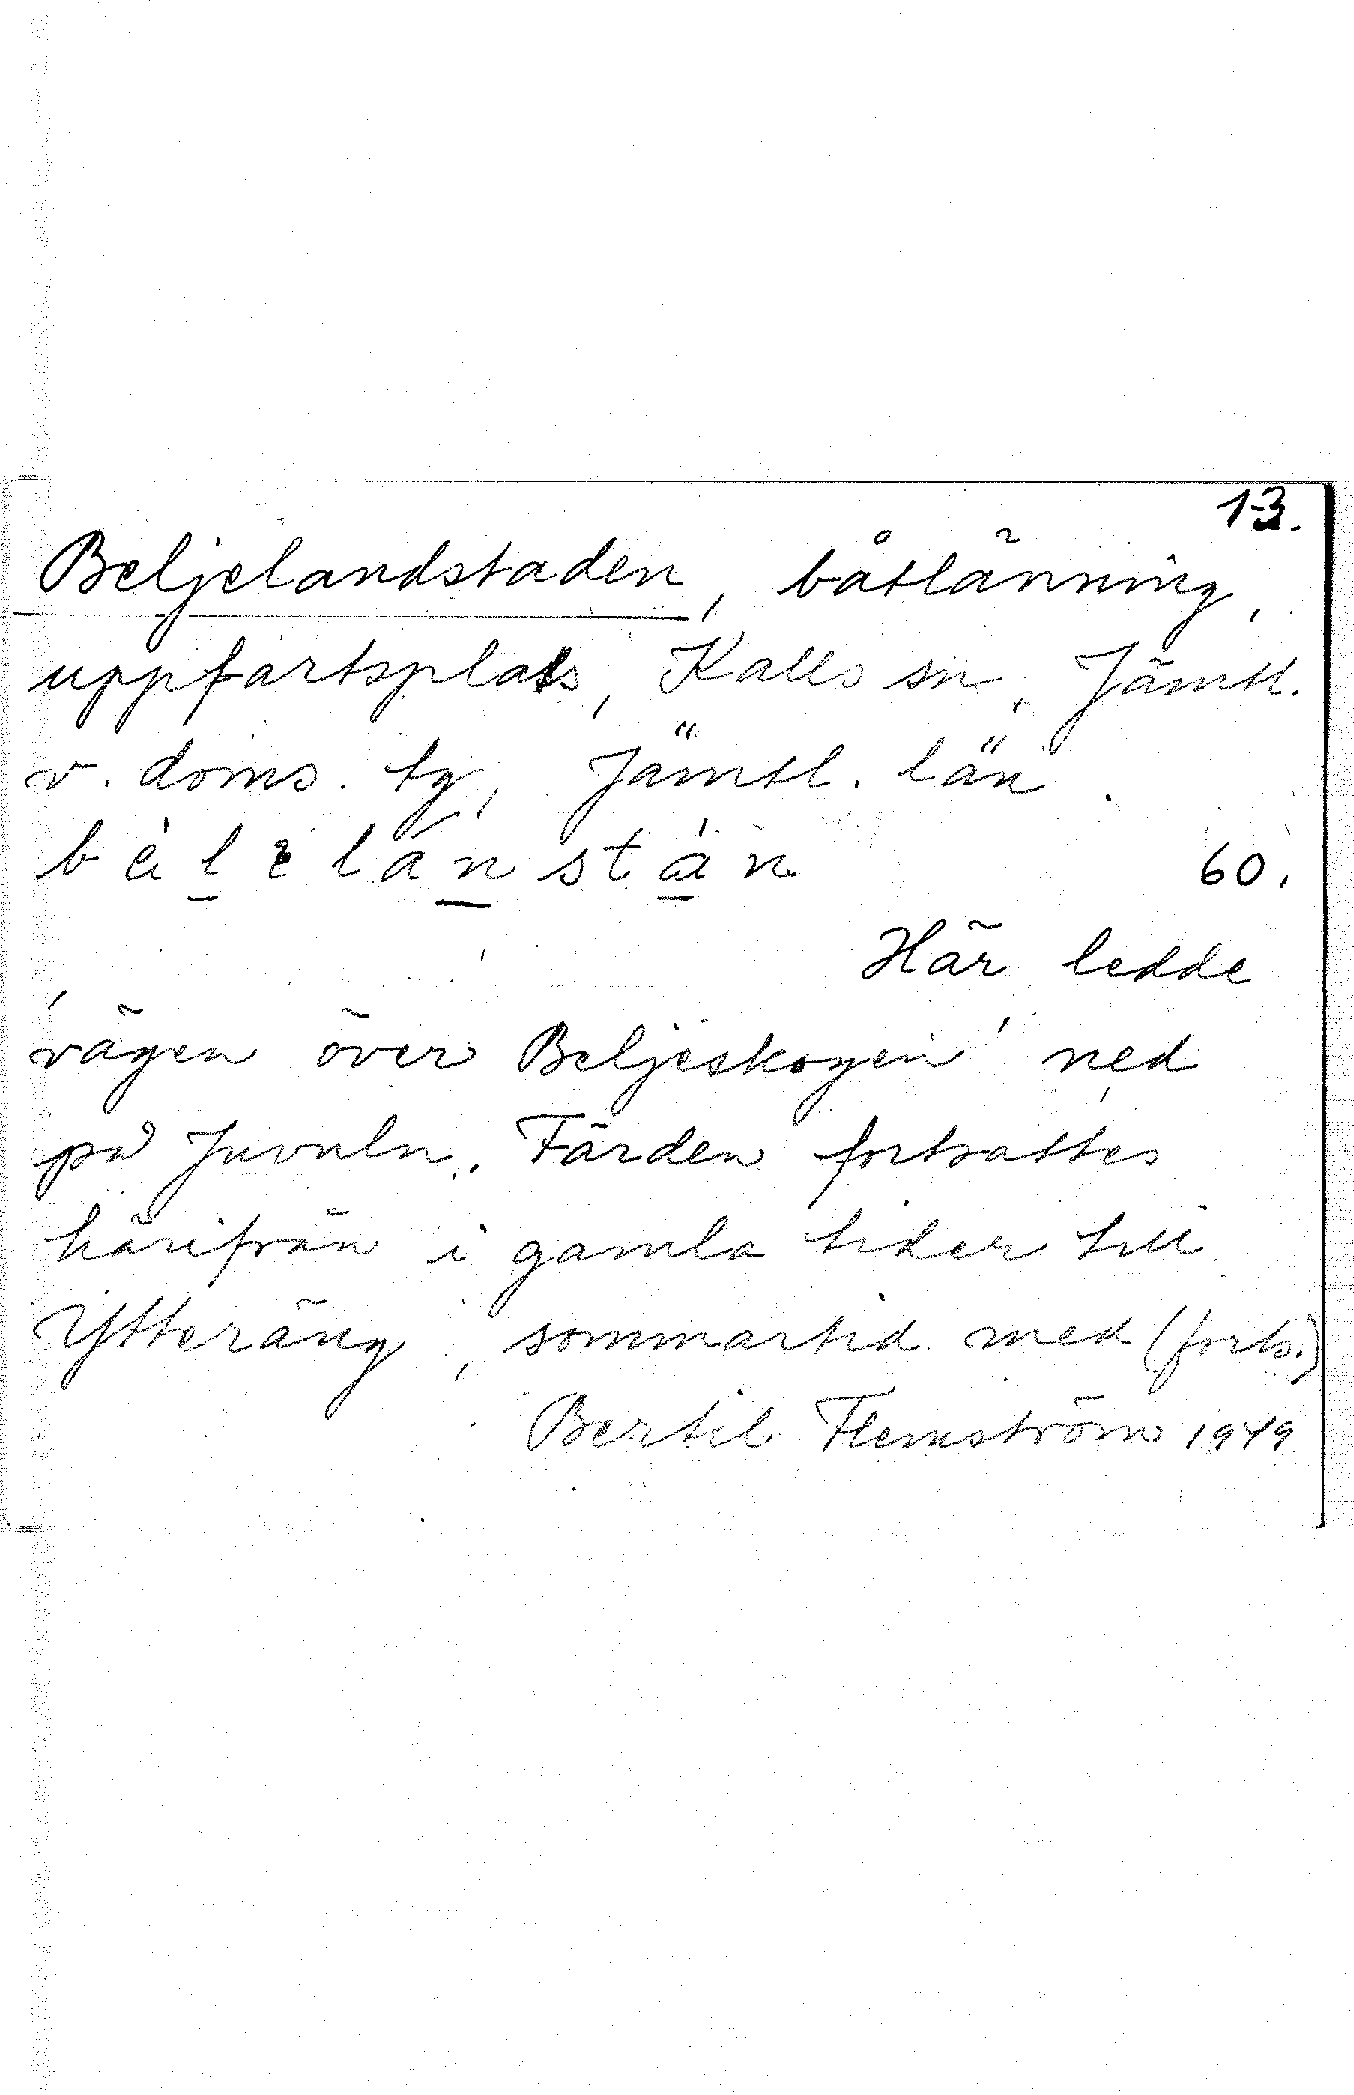 13.
Beljelandstaden, båtlänning,
uppfartsplats, Kalls sn, Jämtl.
v. doms. tg, Jämtl. län.
60.
Här ledde
vägen över Beljeskogen ned
på Juvuln. Färden fortsattes
härifrån i gamla tider till
Ytteräng, sommartid med (forts.)
Bertil Flemström 1949